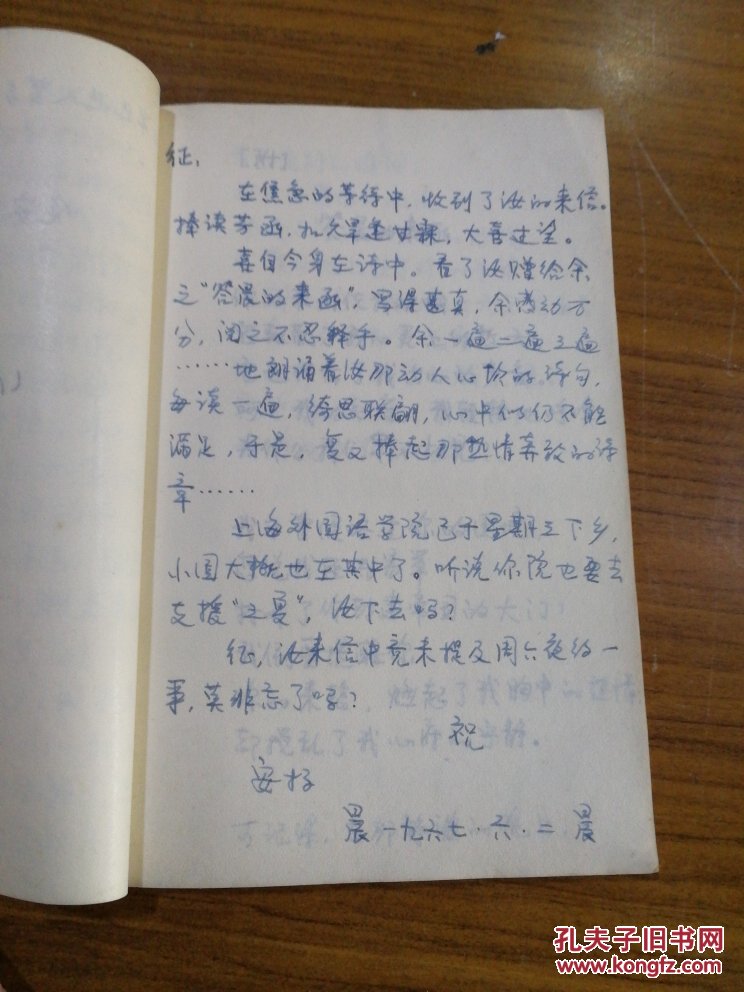 征:
在焦急的等待中,收到了汝的来信。
捧读芳函,如久旱逢甘霖,大喜过望。
喜自今身在诗中。看了汝赠给余
之"答晨的来函",写得甚真,余感动万
分,阅之不忍释手。余一遍二遍三遍
……地朗诵着汝那动人心怀的诗句,
每读一遍,绮思联翩,心中似仍不能
满足,于是,复又捧起那热情奔放的诗
章……
上海外国语学院已于星期三下乡,
小国大概也在其中了。听说你院也要去
支援"三夏",汝下去吗?
征,汝来信中竟未提及周六夜约一
事,莫非忘了吗?
祝
安好
晨 一九六七·六·二 晨
孔夫子旧书网
www.kongfz.com